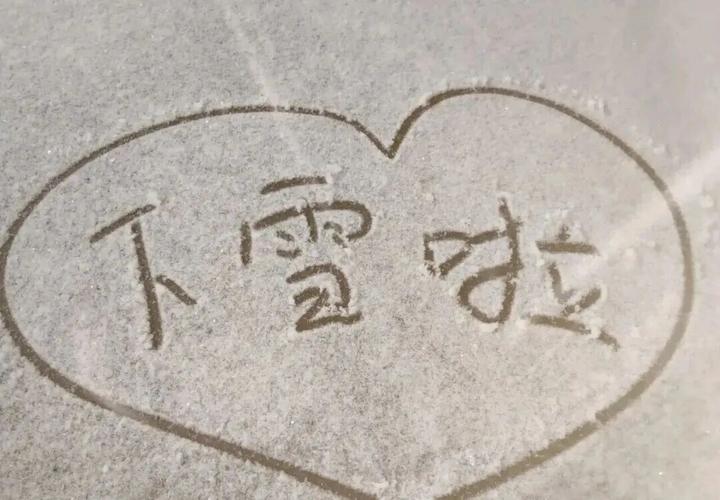 下雪啦